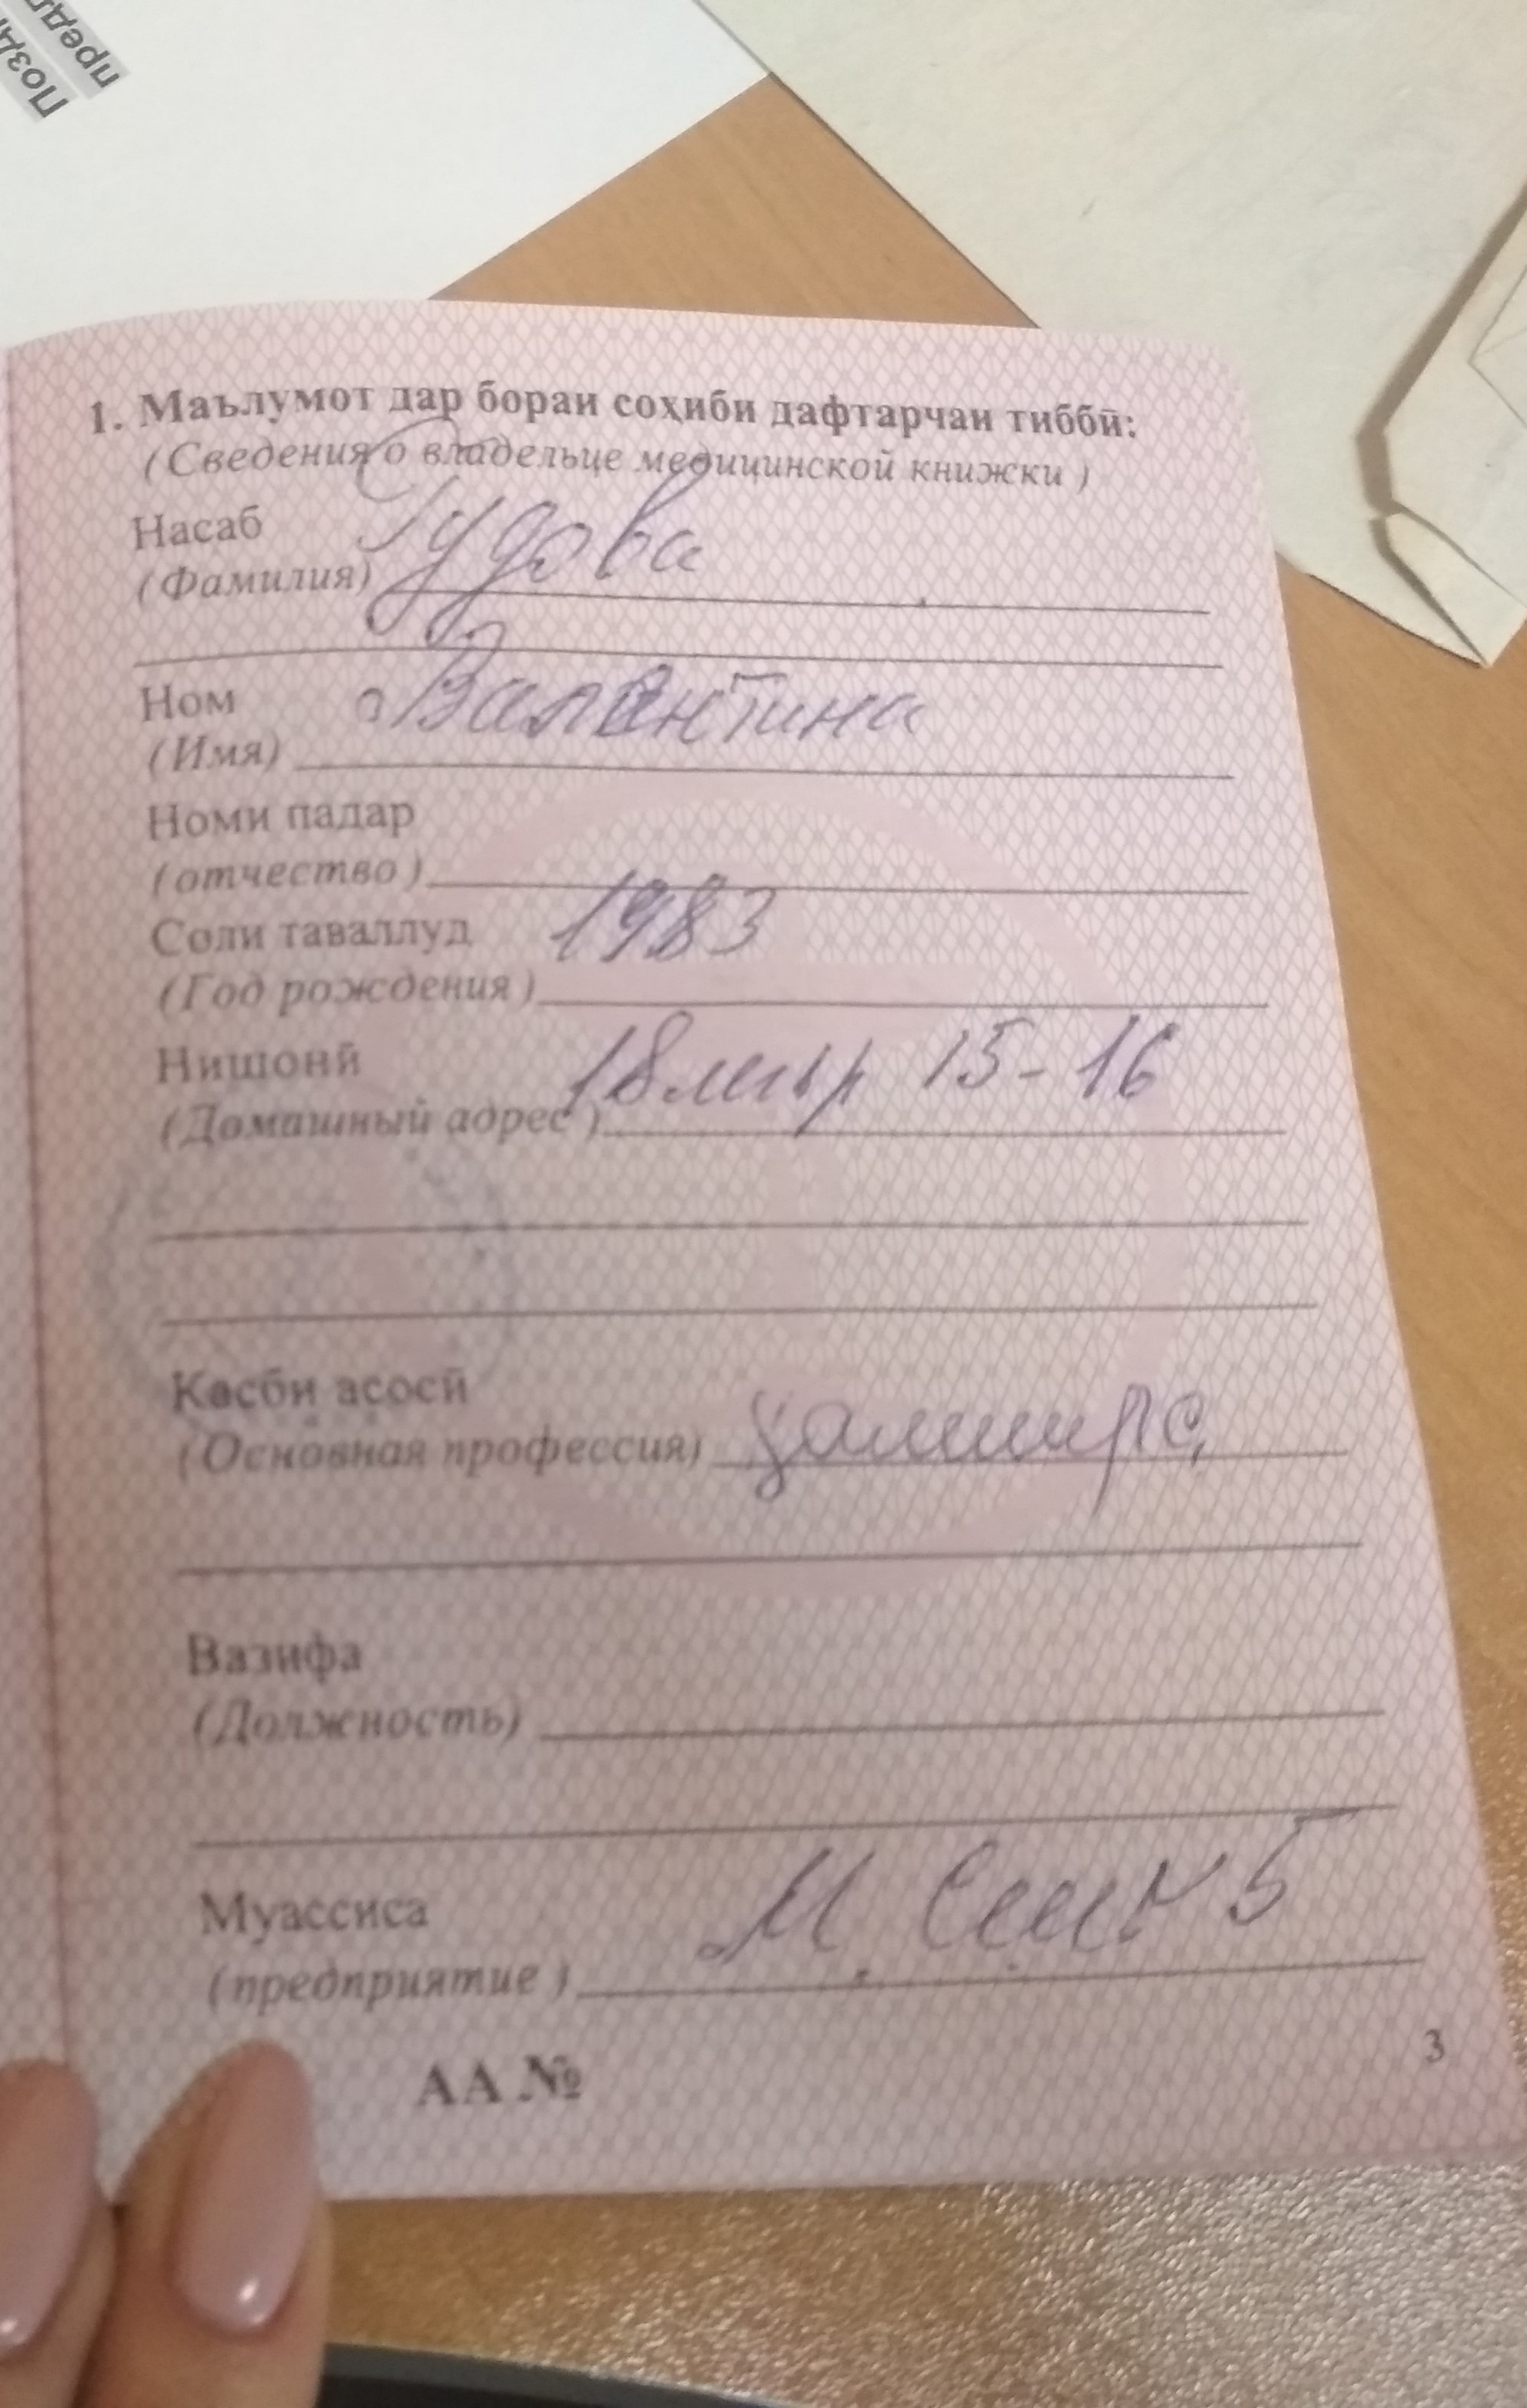 предл
Позд
1. Маълумот дар бораи соҳиби дафтарчаи тиббӣ:
(Сведения о владельце медицинской книжки)
Насаб
(Фамилия) Гудова
Ном
(Имя) Валентина
Номи падар
(отчество)
Соли таваллуд 1983
(Год рождения)
Нишонӣ
(Домашный адрес) 18 мкр 15-16
Касби асосӣ
(Основная профессия)
Вазифа
(Должность)
Муассиса
(предприятие) М. 5
АА №
3